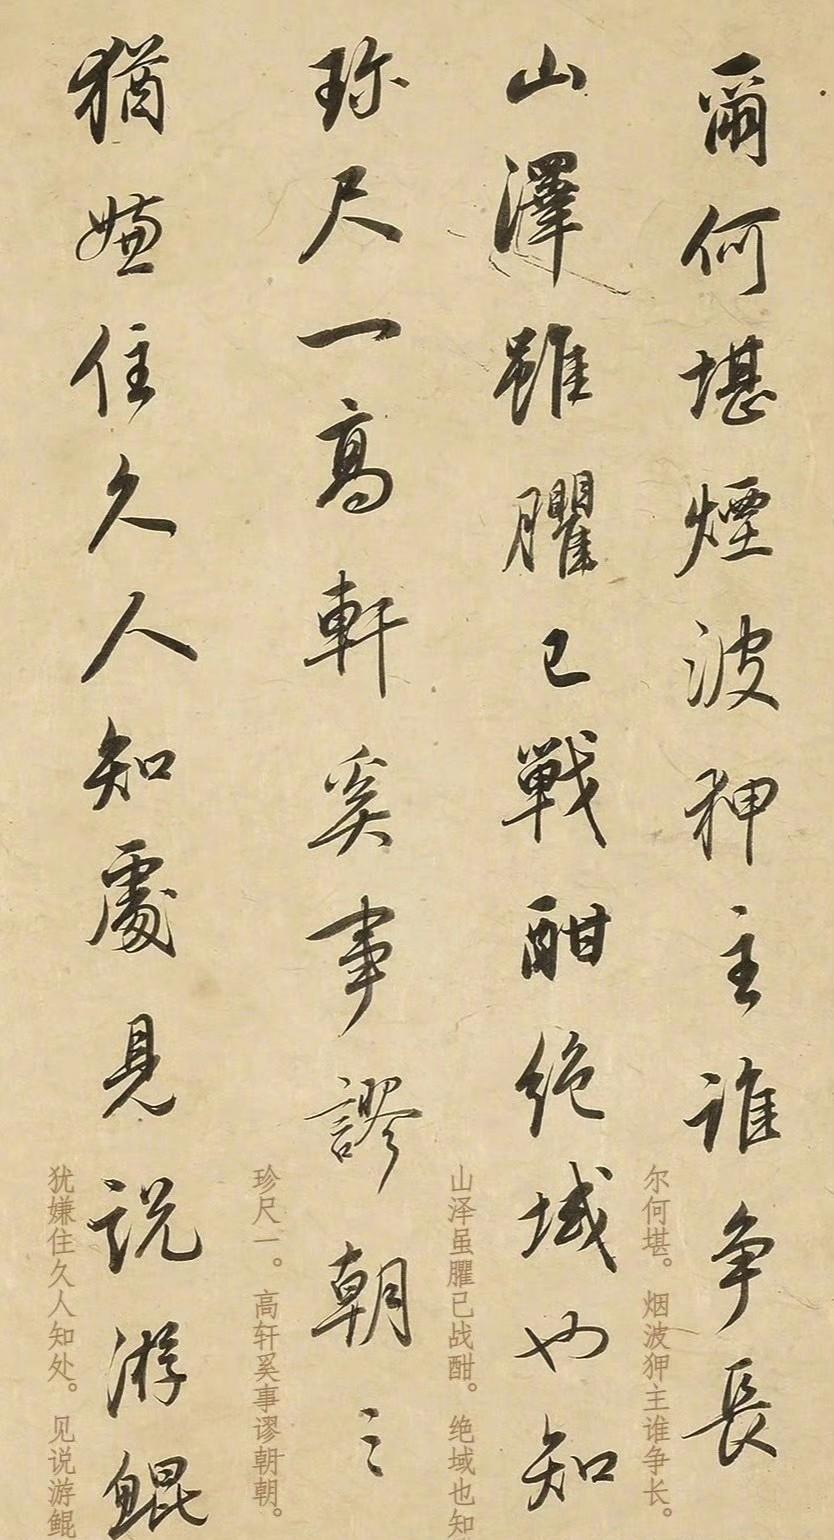 爾何堪煙波狎主誰争長
尔何堪。烟波狎主谁争长。
山澤雖臞已戰酣絶域也知
山泽虽臞已战酣。绝域也知
珎尺一高軒奚事謬朝〻
珍尺一。高轩奚事谬朝朝。
猶嫌住久人知處見説游鯤
犹嫌住久人知处。见说游鲲